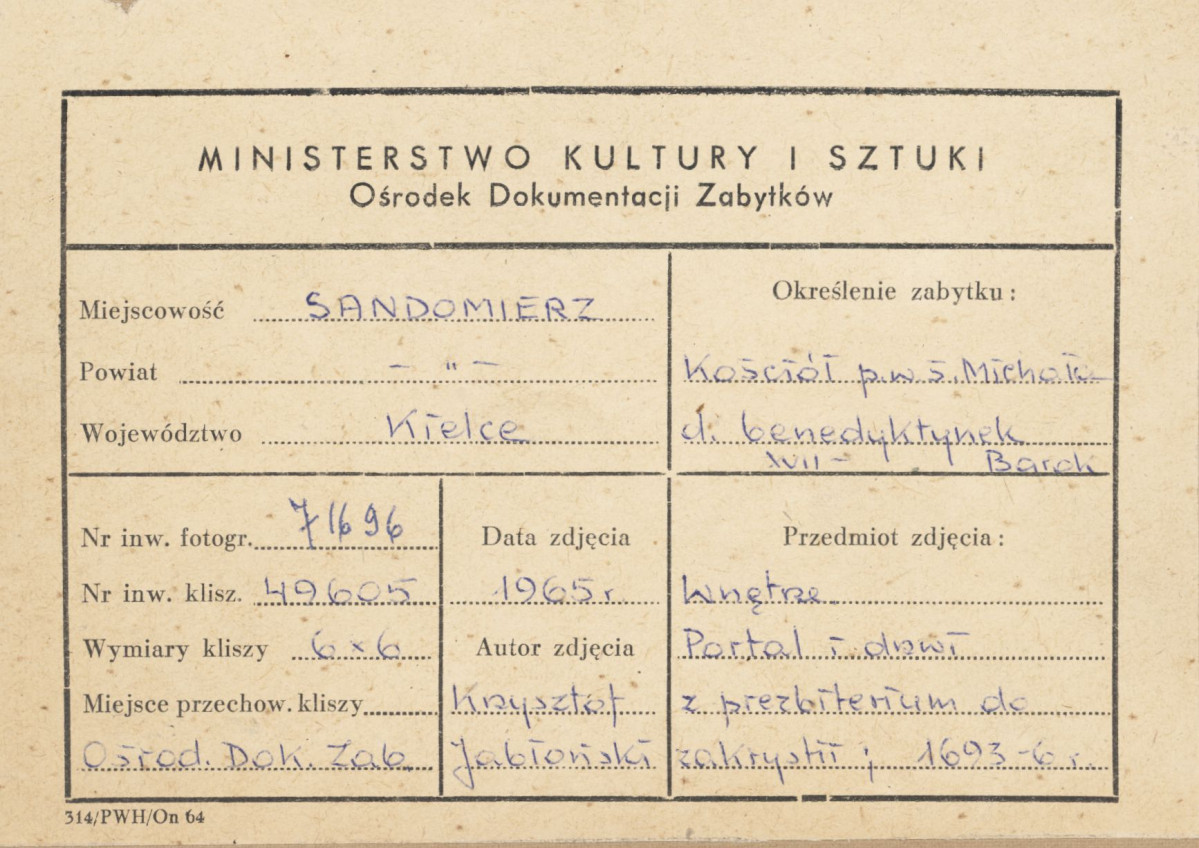 MINISTERSTWO KULTURY I SZTUKI
Ośrodek Dokumentacji Zabytków
Miejscowość SANDOMIERZ
Powiat – " –
Województwo Kielce
Określenie zabytku:
Kościół p.w. ś. Michała
d. benedyktynek
XVII – Barok
Nr inw. fotogr. 71696
Nr inw. klisz. 49605
Wymiary kliszy 6×6
Miejsce przechow. kliszy
Ośrod. Dok. Zab.
Data zdjęcia
1965 r.
Autor zdjęcia
Krzysztof
Jabłoński
Przedmiot zdjęcia:
Wnętrze
Portal i drzwi
z prezbiterium do
zakrystii; 1693-6 r.
314/PWH/On 64